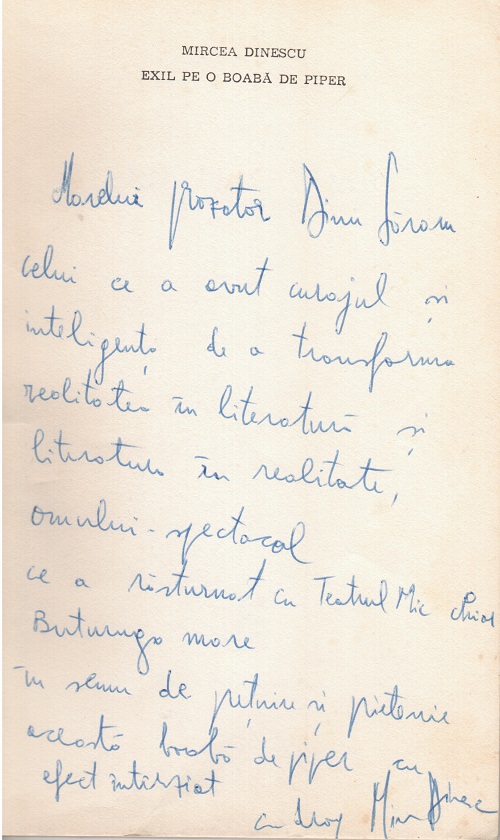 MIRCEA DINESCU
EXIL PE O BOABĂ DE PIPER
Marelui prozator Dinu Săraru
celui ce a avut curajul și
inteligența de a transforma
realitatea în literatură și
literatura în realitate,
omului-spectacol
ce a răsturnat cu Teatrul Mic chiar
Buturuga mare
în semn de prețuire și prietenie
această boabă de piper cu
efect întârziat
cu drag Mircea Dinescu